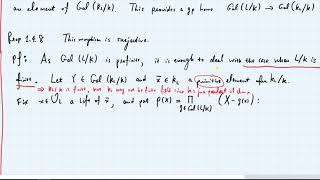 an element of Gal(k_L/k). This provides a gp hom Gal(L/K) → Gal(k_L/k)
Prop 1.4.8 This morphism is surjective.
Pf: As Gal(L/K) is profinite, it is enough to deal with the case when L/K is
finite. Let γ ∈ Gal(k_L/k) and x̄ ∈ k_L a primitive element for k_L/k.
is finite, but k_L may not be finite field since k is just perfect
Fix x ∈ O_L a lift of x̄, and put P(X) = ∏_{g∈Gal(L/K)} (X - g(x)) :